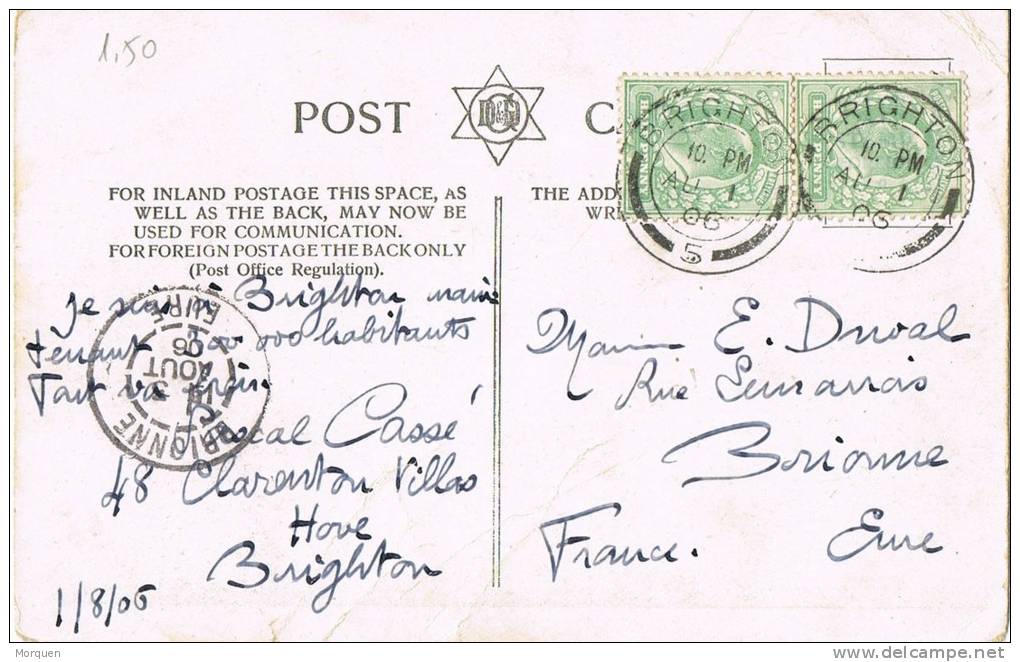 1,50
POST
D&G
FOR INLAND POSTAGE THIS SPACE, AS
WELL AS THE BACK, MAY NOW BE
USED FOR COMMUNICATION.
FOR FOREIGN POSTAGE THE BACK ONLY
(Post Office Regulation).
THE ADD
WR
BRIGHTON
10. PM
AU 1
06
5
BRIGHTON
10. PM
AU 1
06
Je suis à Brighton main
tenant 300 000 habitants
Tout va
Pascal Cassé
48 Clarenton Villas
Hove
Brighton
1/8/06
BRIONNE
3
AOUT
06
EURE
E. Duval
Rue
Brionne
France. Eure
Morquen
delcampe.net